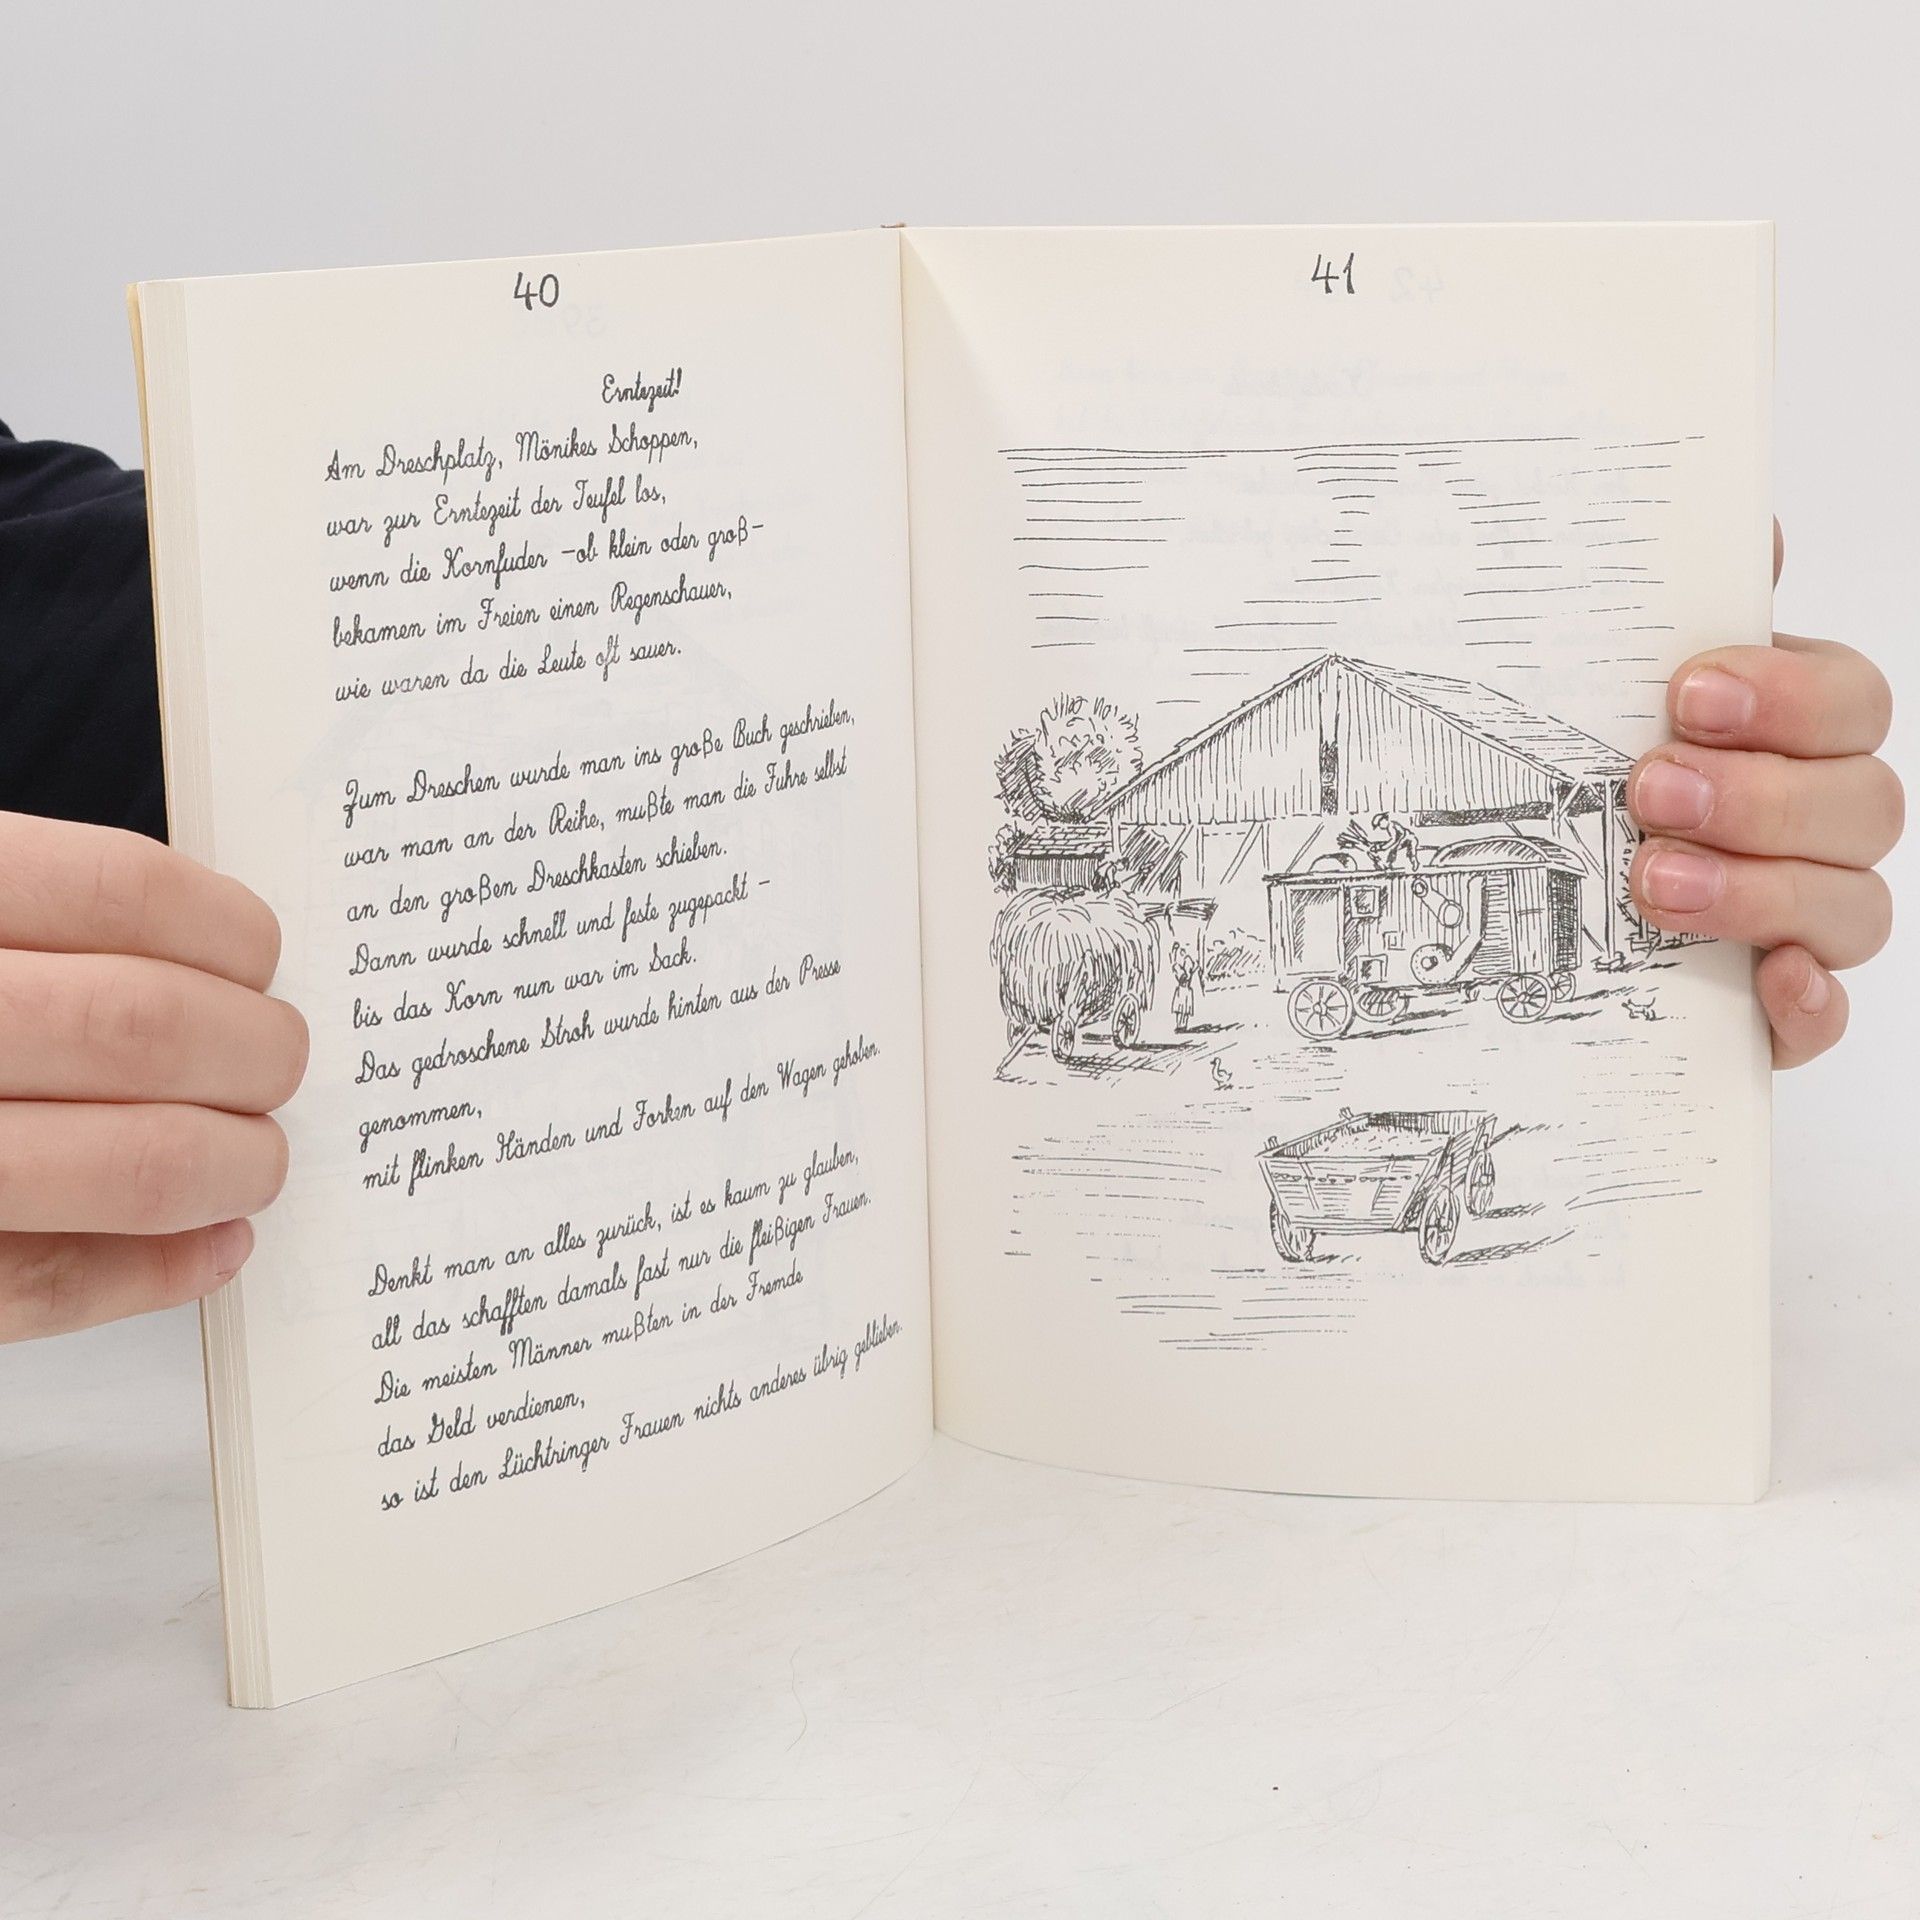 40
Erntezeit!
Am Dreschplatz, Mönikes Schoppen,
war zur Erntezeit der Teufel los,
wenn die Kornfuder -ob klein oder groß-
bekamen im Freien einen Regenschauer,
wie waren da die Leute oft sauer.
Zum Dreschen wurde man ins große Buch geschrieben,
war man an der Reihe, mußte man die Fuhre selbst
an den großen Dreschkasten schieben.
Dann wurde schnell und feste zugepackt -
bis das Korn nun war im Sack.
Das gedroschene Stroh wurde hinten aus der Presse
genommen,
mit flinken Händen und Forken auf den Wagen gehoben.
Denkt man an alles zurück, ist es kaum zu glauben,
all das schafften damals fast nur die fleißigen Frauen.
Die meisten Männer mußten in der Fremde
das Geld verdienen,
so ist den Lüchtringer Frauen nichts anderes übrig geblieben.
41